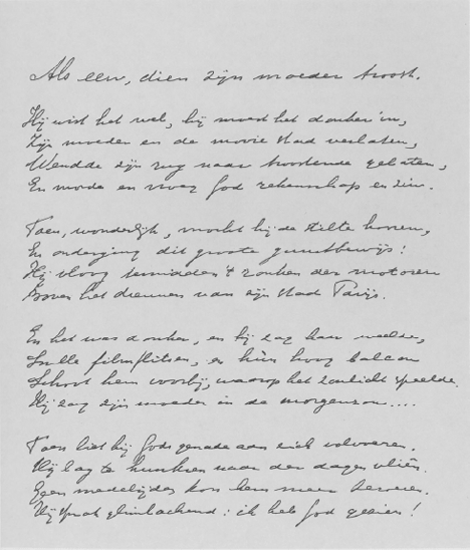 Als een, dien zijn moeder troost.
Hij wist het wel, hij moest het donker in,
Zijn moeder en de mooie stad verlaten,
Wendde zijn rug naar troostende gelaten,
En moede en vroeg God rekenschap en zin.
Toen, wonderlijk, mocht hij de stilte hooren,
En onderging dit groote gunstbewijs!
Hij vloog temidden 't ronken der motoren
Boven het dreunen van zijn stad Parijs.
En het was donker, en hij zag haar weelde,
Snelle filmflitsen, en hun hoog balcon
Schoot hem voorbij, waarop het zonlicht speelde.
Hij zag zijn moeder in de morgenzon....
Toen liet hij Gods genade aan zich volvoeren.
Hij lag te hunkren naar der dagen vliên.
Geen medelijden kon hem meer beroeren.
Hij sprak glimlachend: ik heb God gezien!